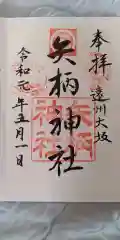 奉拝 遠州大坂
矢柄神社
令和元年五月一日
矢柄神社